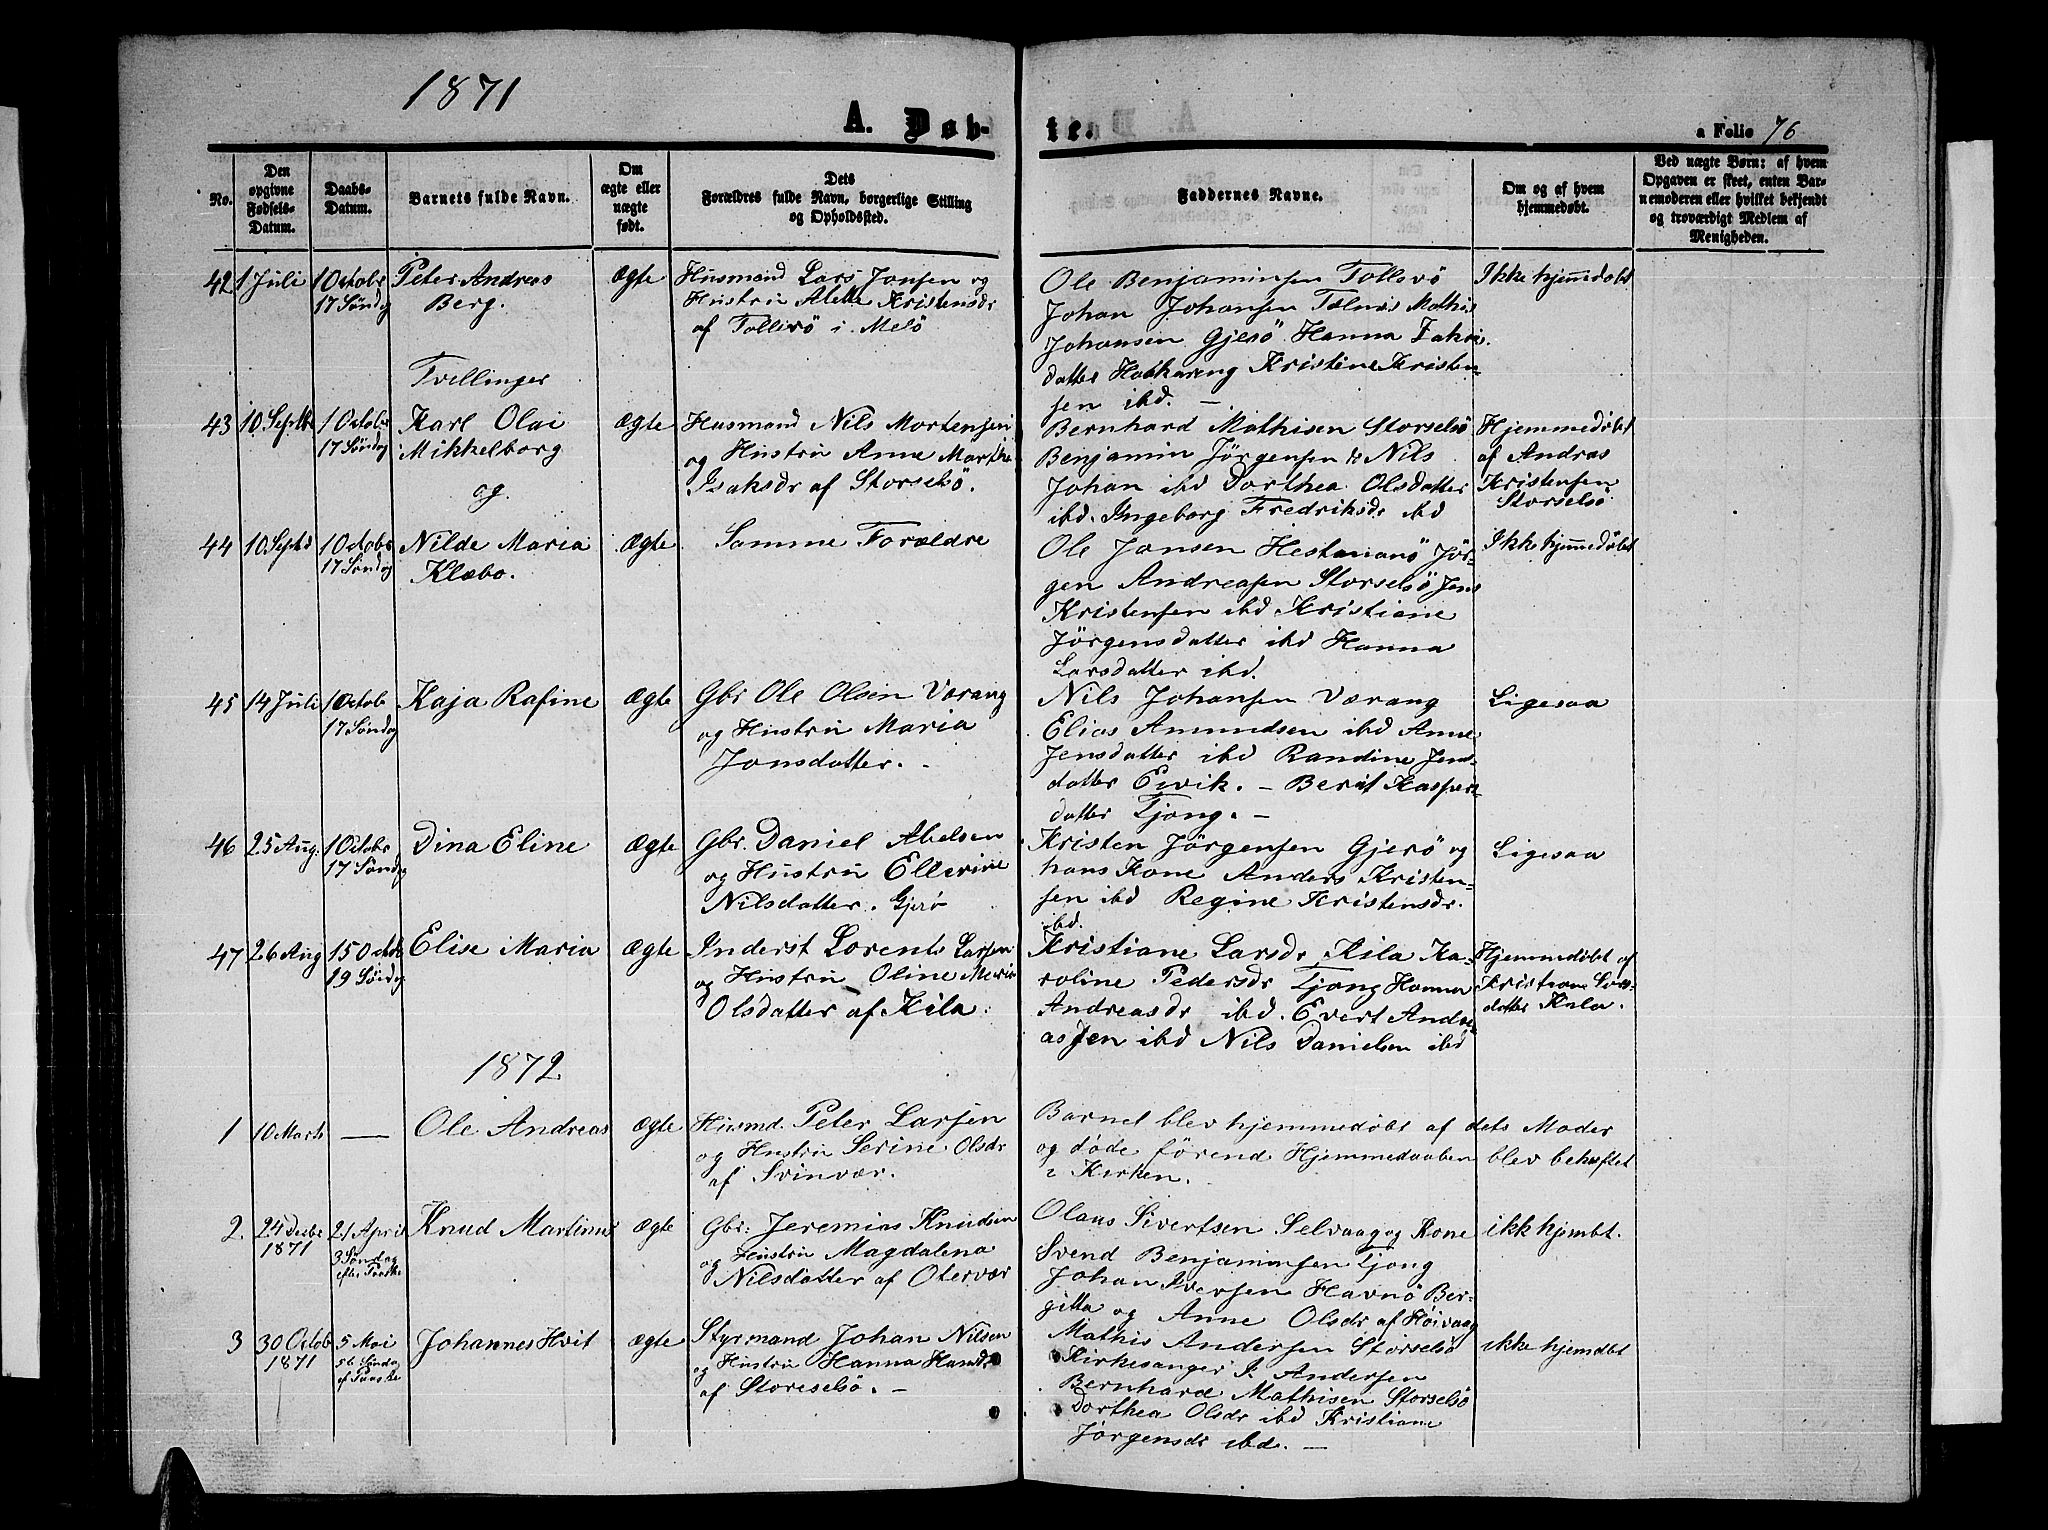 1871
A. Døb-
te.
a Folio 76
No.
Den
opgivne
Fødsels-
Datum.
Daabs-
Datum.
Barnets fulde Navn.
Om
ægte eller
uægte
født.
Dets
Forældres fulde Navn, borgerlige Stilling
og Opholdssted.
Faddernes Navne.
Om og af hvem
hjemmedøbt.
Ved uægte Børn: af hvem
Opgaven er skeet, enten Bar-
nemoderen eller hvilket bekjendt
og troværdigt Medlem af
Menigheden.
42
1 Juli
1 Octobr
17 Søndag
Peter Andreas
Berg.
Ægte
Husmand Lars Jonsen og
Hustru Alette Kristensdr
af Tollisö i Melö
Ole Benjaminsen Tollsvö
Johan Johansen Tælnes Mathis
Johansen Gjesö Hanna
datter Kristine Kristen-
sen ibd. —
Ikke hjemmedøbt
Tvellinger
43
10 Septbr
1 Octobr
17 Søndag
Karl Olai
Mikkelborg
og
Ægte
Husmand Nils Mortensen
og Hustru Anne Marthe
Isaksdr af Storselsö.
Bernhard Mathisen Storselsö
Benjamin Jörgensen do Nils
Johan ibd Dorthea Olsdatter
ibd. Ingeborg Fredriksdr ibd
Hjemmedöbt
af Andras
Kristensen
Storselsö
44
10 Septb
1 Octobr
17 Søndag
Nilde Maria
Klæbo.
Ægte
Samme Forældre
Ole Jansen Hestmanö Jör-
gen Andreasen Storselsö Jens
Kristensen ibd Kristiane
Jörgensdatter ibd Hanna
Larsdatter ibd.
Ikke hjemmedøbt
45
14 Juli
1 Octob
17 Søndag
Kaja Rafine
Ægte
Gbr Ole Olsen Værang
og Hustru Maria
Jonsdatter. -
Nils Johansen Værang
Elias Amundsen ibd Anne
Jensdatter ibd Randine Jens-
datter Esvik. — Berit Kaspers
datter Tjong. —
Ligesaa
46
25 Aug.
1 Octobr
17 Søndag
Dina Eline
Ægte
Gbr. Daniel Abelsen
og Hustru Ellerine
Nilsdatter. Gjerö
Kristen Jörgensen Gjerö og
hans Kone Anders Kristen-
sen ibd Regine Kristensdr.
ibd.
Ligesaa
47
26 Aug
15 Octbr
19 Søndag
Elise Maria
Ægte
Inderst Lorents Larsen
og Hustru Oline Marie
Olsdatter af Kila.
Kristiane Larsdr Kila Ka-
roline Pedersdr Tjong Hanna
Andreasdr ibd. Evert Andre-
assen ibd Nils Danielsen ibd
Hjemmedøbt af
Kristiane Lars-
datter Kila.
1872
1
10 Marts
—
Ole Andreas
Ægte
Husmd. Peter Larsen
og Hustru Serine Olsdr
af Svinvær.
Barnet blev hjemmedöbt af dets Moder
og döde förend Hjemmedaaben blev bekræftet
i Kirken.
2.
24 Decbr
1871
21 April
3 Søndag
efter Paaske
Knud Martinus
Ægte
Gbr. Jeremias Knudsen
og Hustru Magdalena
Nilsdatter af Otervær
Olaus Sivertsen Selvaag og Kone
Svend Benjaminsen Tjong
Johan Iversen Havnö Ber-
gitta og Anne Olsdr af Höivaag
ikk hjembt.
3
30 Octob
1871
5 Mai
5te Søndag
ef Paaske
Johannes Hvit
Ægte
Styrmand Johan Nilsen
og Hustru Hanna Hansdr
af Storeselsö. —
Mathis Andersen Storselsö
Kirkesanger J. Andersen
Bernhard Mathisen Storselsö
Dorthea Olsdr ibd Kristiane
Jörgensdr ibd. —
ikke hjemdøbt